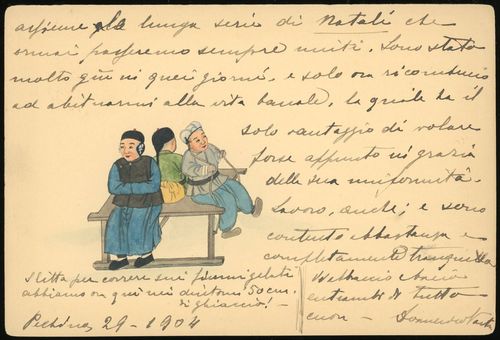 assieme la lunga serie di Natali che
ormai passeremo sempre uniti. Sono stato
molto giù in quei giorni, e solo ora ricomincio
ad abituarmi alla vita banale, la quale ha il
solo vantaggio di volare
forse appunto in grazia
della sua uniformità.
Lavoro, anche; e sono
contento abbastanza e
completamente tranquillo
Vi abbraccio
entrambi di tutto
cuore -
Slitta per correre sui fiumi gelati
abbiamo ora qui un 50 cm.
di ghiaccio! -
Pechino, 29 - 1904